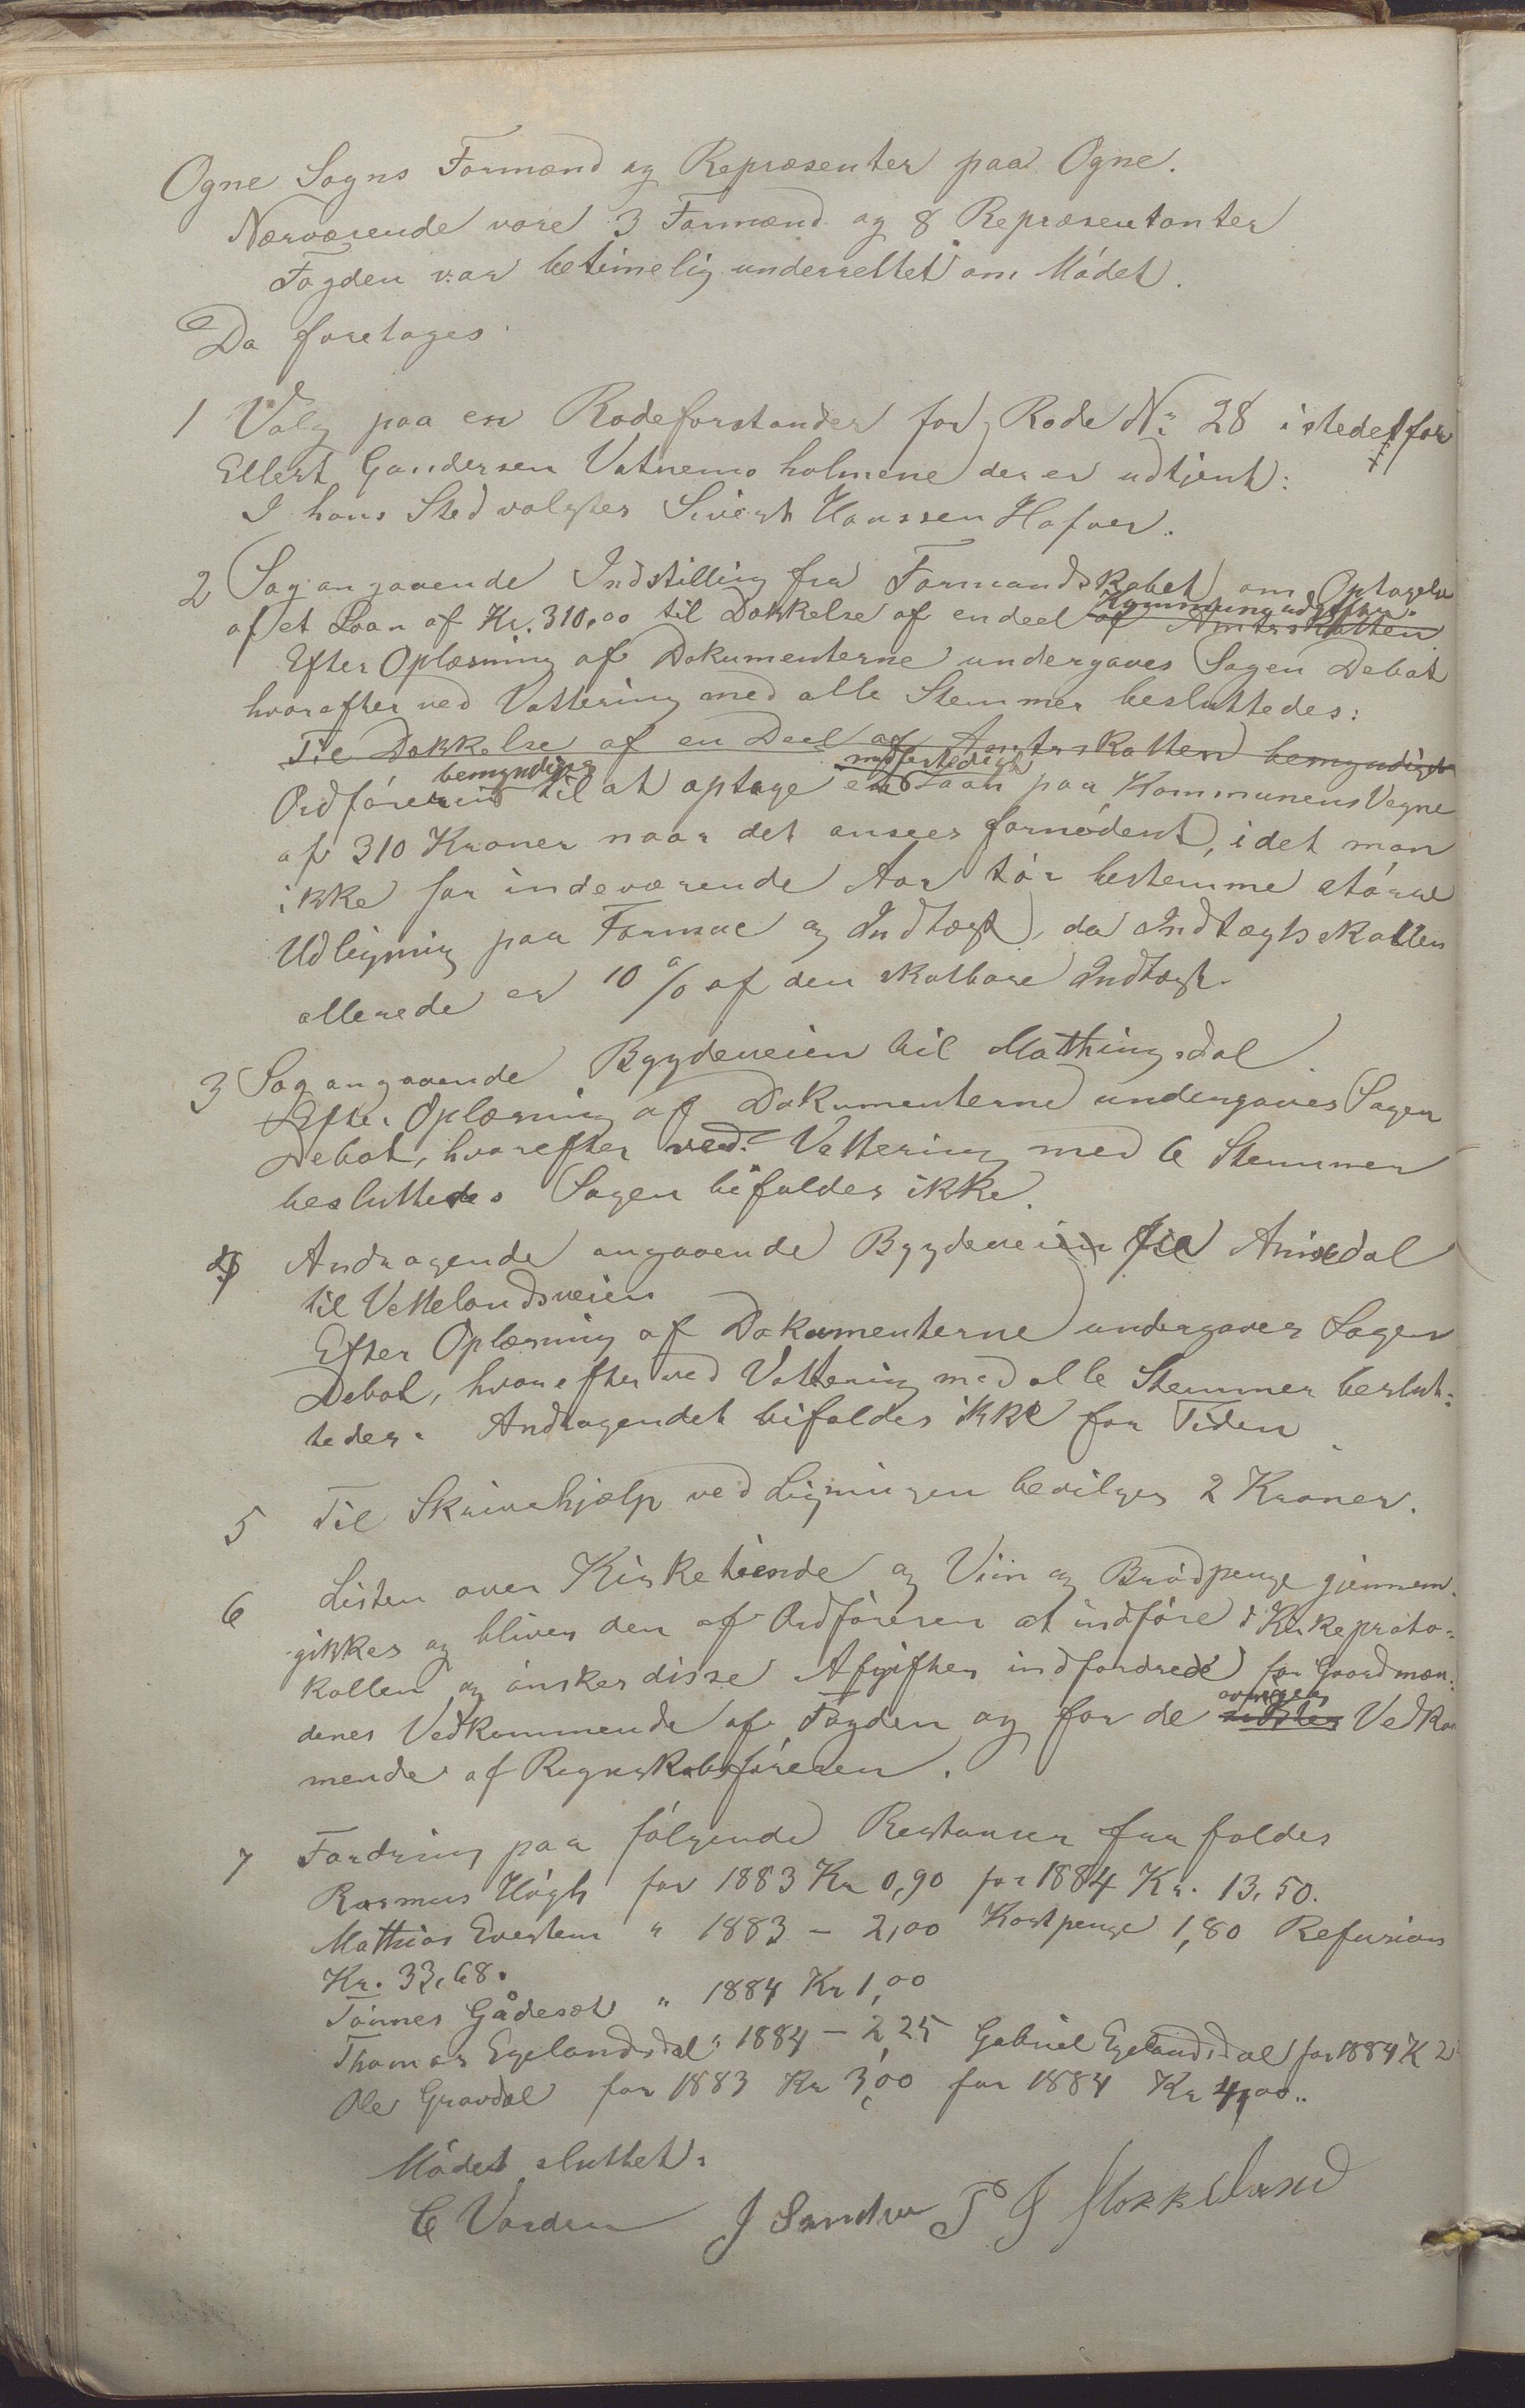 Ogne Sogns Formænd og Repræsenter paa Ogne.
Nærværende vare 3 Formænd og 8 Repræsentanter
Fogden var betimelig underrettet om Mödet.
Da foretages
1 Valg paa en Rodeforstander for Rode No 28 istedetfor
Ellert Gundersen Vatnemo holmene der er udtjent:
I hans Sted valgtes Sivert Hanssen Hafver.
2 Sag angaaende Indstilling fra Formandskabet om Optagelse
af et Laan af Kr. 310,00 til Dækkelse af endeel af Amtsskatten
Kommuneudgifter.
Efter Oplæsning af Dokumenterne undergaves Sagen Debat
hvorefter ved Vottering med alle Stemmer besluttedes:
Til Dækkelse af en Deel af Amtsskatten bemyndiges
bemyndiges midlertidigt
Ordföreren til at optage et Laan paa Kommunens Vegne
af 310 Kroner naar det ansees fornödent, idet man
ikke for indeværende Aar tör bestemme större
Udligning paa Formue og Indtægt, da Indtægtsskatten
allerede er 10 % af den skatbare Indtægt.
3 Sag angaaende Bygdeveien til Mathingsdal
Efter Oplæsning af Dokumenterne undergaves Sagen
Debat, hvorefter ved Vottering med 6 Stemmer
besluttedes Sagen bifaldes ikke.
4 Andragende angaaende Bygdeveien fra Anisdal
til Vettelandsveien
Efter Oplæsning af Dokumenterne undergaves Sagen
Debat, hvorefter ved Vottering med alle Stemmer beslut:
tedes. Andragendet bifaldes ikke for Tiden
5 Til Skrivehjælp ved Ligningen bevilges 2 Kroner.
6 Listen over Kirketiende og Viin og Brödpenge gjennem-
gikkes og bliver den af Ordföreren at indföre i Kirkeproto-
kollen og önskes disse Afgifter indfordrede for Gaardmæn:
denes Vedkommende af Fogden og for de sidstes Vedkom
övriges
mende af Regnskabsföreren.
7 Fordring paa fölgende Restanser frafaldes
Rasmus Högh for 1883 Kr 0,90 for 1884 Kr. 13,50.
Mathias Evestem " 1883 - 2,00 Kostpenge 1,80 Refusion
Kr. 33,68.
Tönnes Gådesæt " 1884 Kr 1,00
Thomas Egelandsdal " 1884 - 2,25 Gabriel Egelandsdal for 1884 K 2
Ole Gravdal for 1883 Kr 3,00 for 1884 Kr 4,00..
Mödet sluttet.
C Varden J Sandve P J Stokkeland